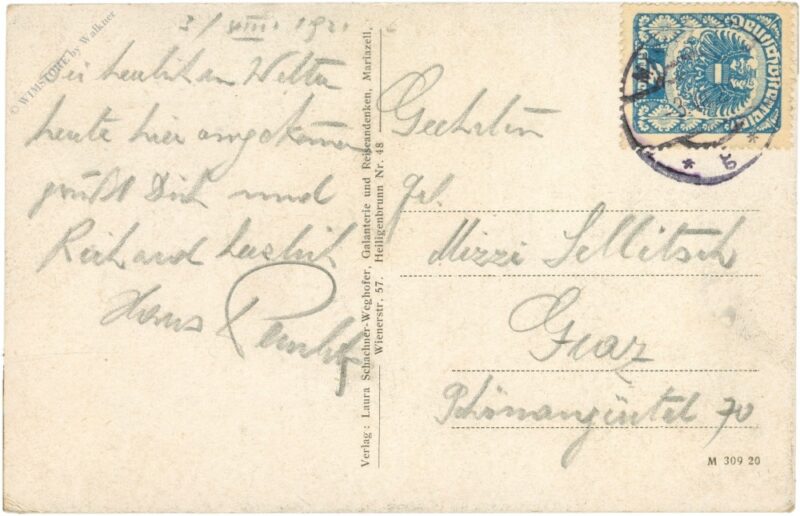 3/VIII. 1921
Bei herrlichem Wetter
heute hier angekommen
grüßt Dich und
Richard herzlich
Hans
Geehrten
Frl.
Mizzi Sellitsch
Graz
Schönaugürtel 70
Deutschösterreich
Verlag: Laura Schachner-Weghofer, Galanterie und Reiseandenken, Mariazell,
Wienerstr, 57. Heiligenbrunn Nr. 48
M 309 20
© WIMSTORE by Walkner